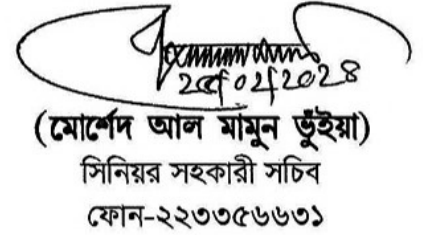 ২৫/০২/২০২৪
(মোর্শেদ আল মামুন ভুঁইয়া)
সিনিয়র সহকারী সচিব
ফোন-২২৩৩৫৬৬৩১